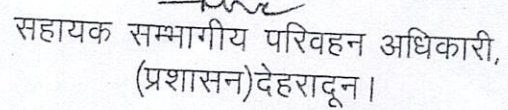 सहायक सम्भागीय परिवहन अधिकारी,
(प्रशासन)देहरादून।